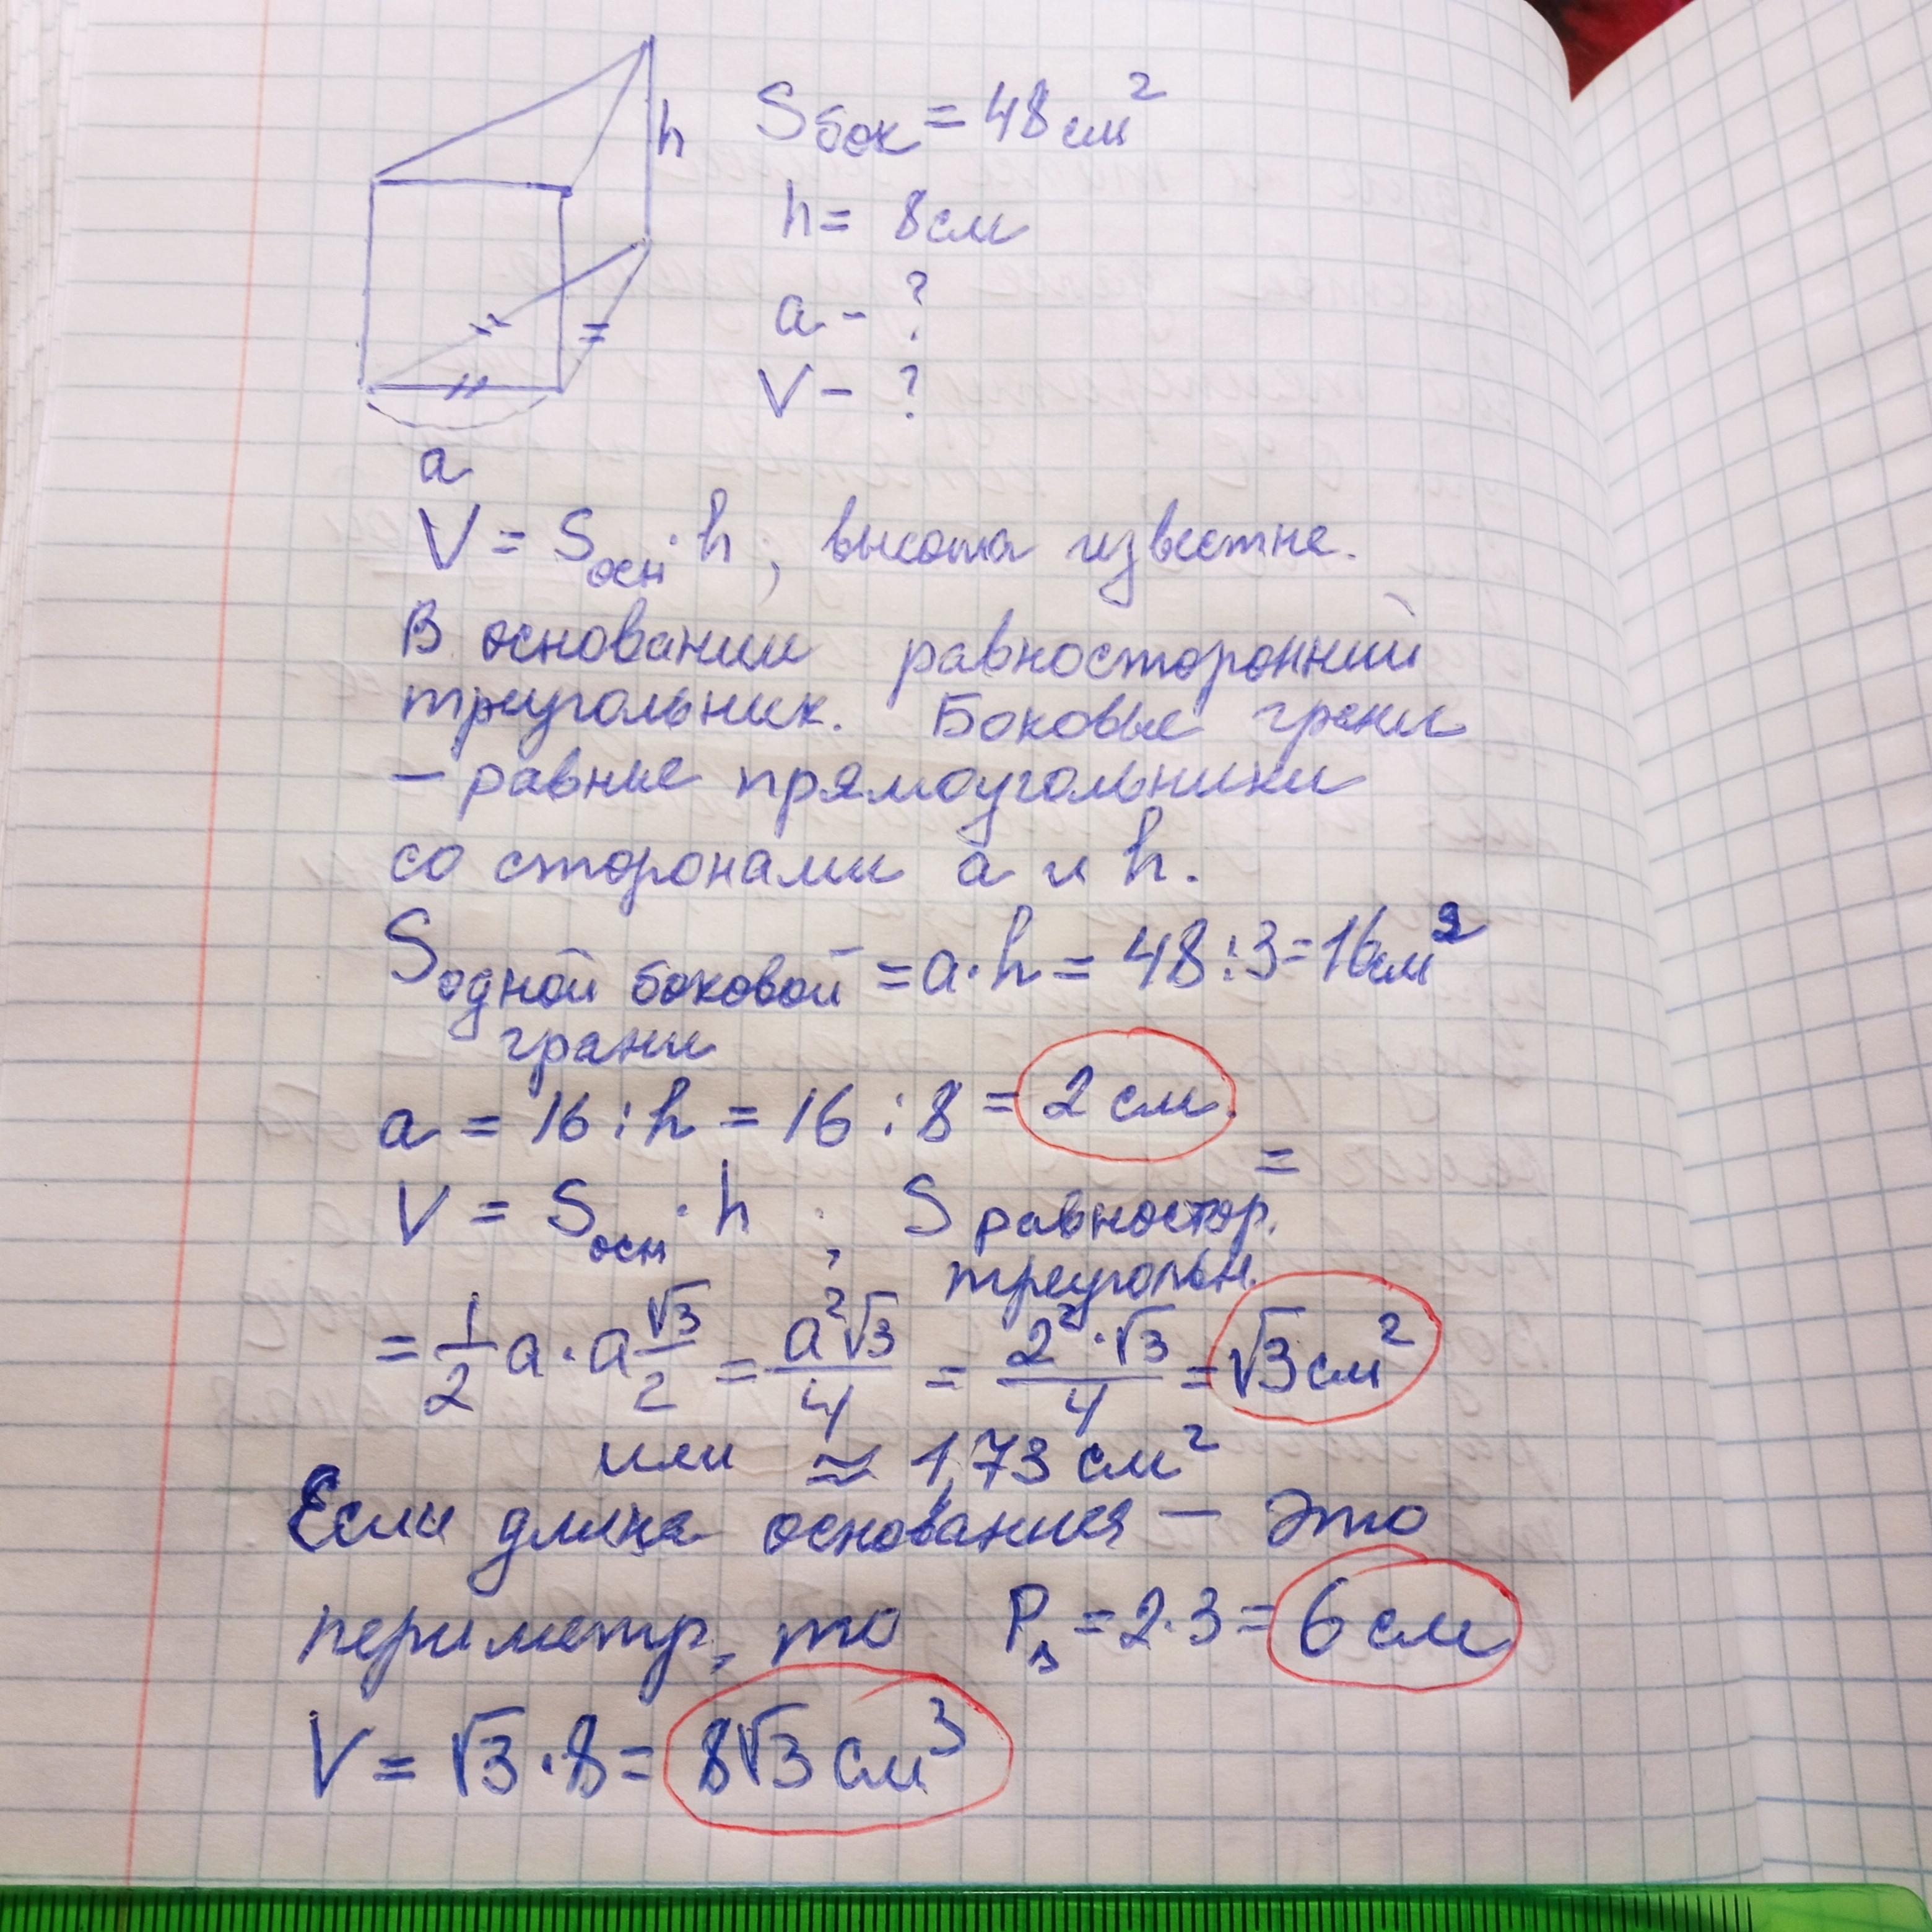 h
Sбок = 48 см²
h = 8 см
a - ?
V - ?
a
V = Sосн · h ; высота известна.
В основании равносторонний
треугольник. Боковые грани
— равные прямоугольники
со сторонами a и h.
Sодной боковой грани = a · h = 48 : 3 = 16 см²
a = 16 : h = 16 : 8 = 2 см.
V = Sосн · h ; Sравностор. треугольн. =
= 1/2 a · a √3/2 = a²√3/4 = 2² · √3/4 = √3 см²
или ≈ 1,73 см²
Если длина основания — это
периметр, то P▵ = 2 · 3 = 6 см
V = √3 · 8 = 8√3 см³